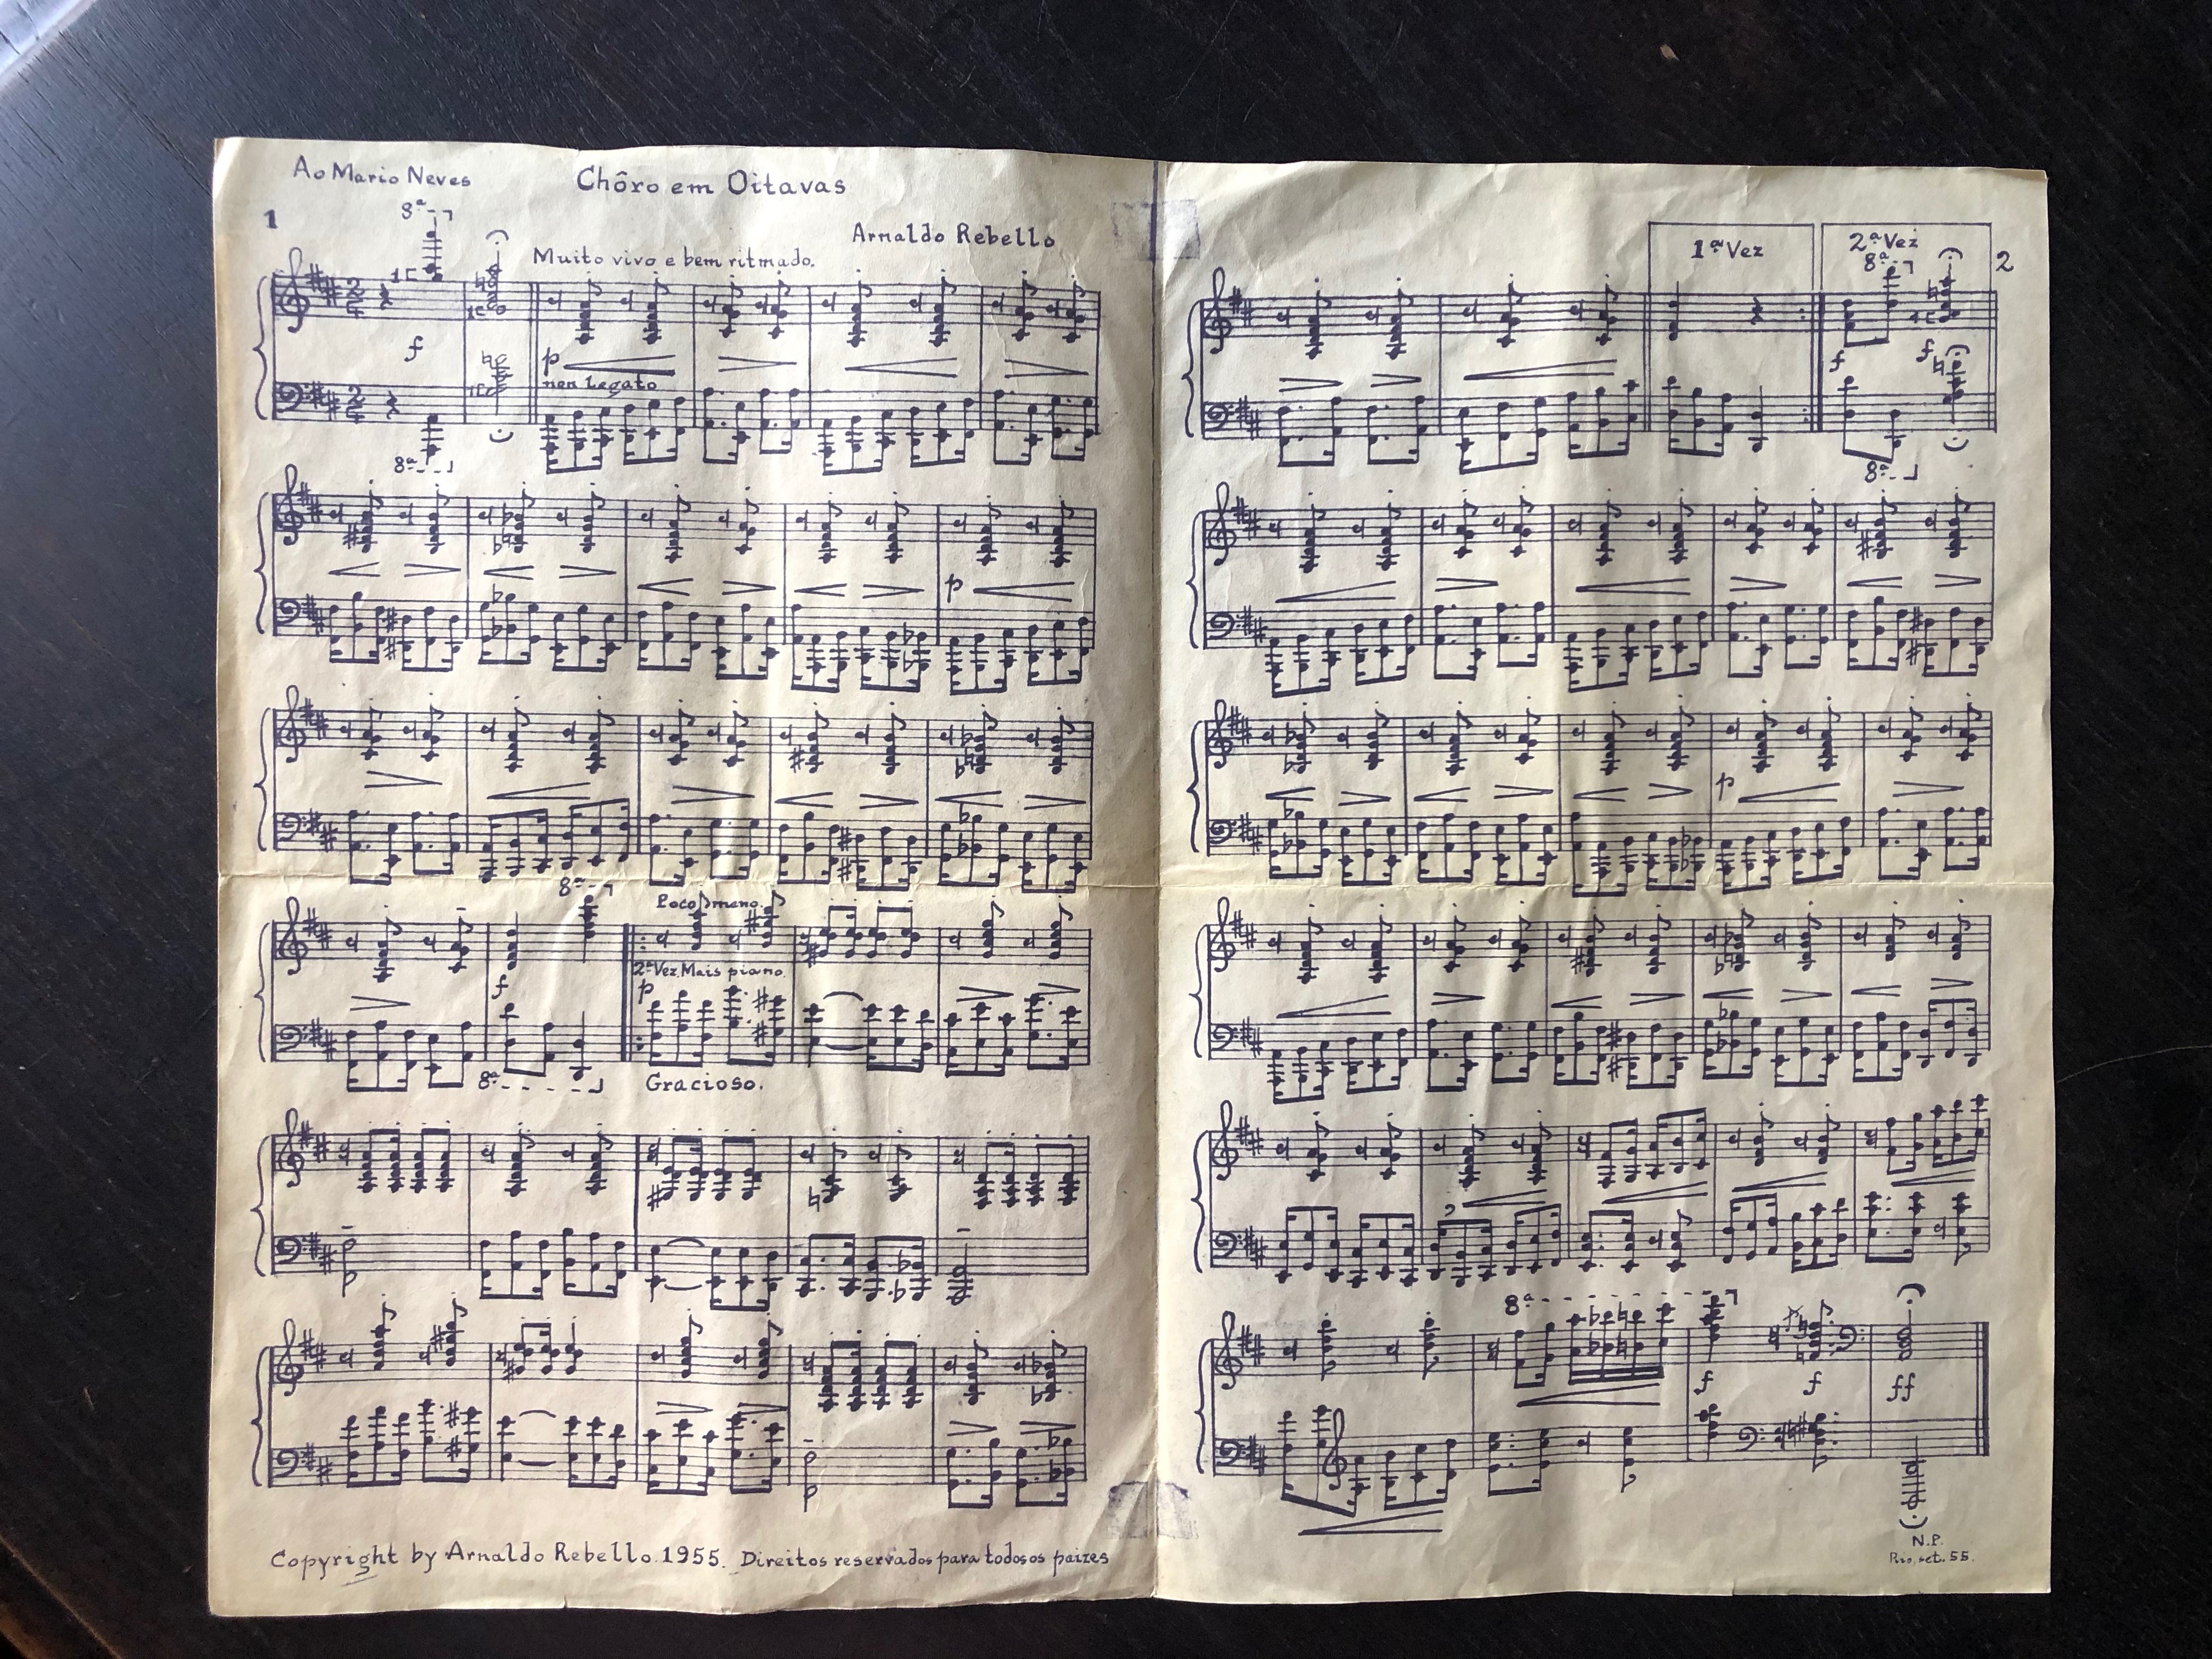 Ao Mario Neves
Chôro em Oitavas
1
8ª
Arnaldo Rebello
Muito vivo e bem ritmado.
f
p
non legato
8ª
p
8ª
Poco meno.
2ª Vez. Mais piano.
f
p
8ª
Gracioso.
Copyright by Arnaldo Rebello. 1955. Direitos reservados para todos os paizes
1ª Vez
2ª Vez
8ª
2
f
f
8ª
p
8ª
f
f
ff
N.P.
Rio, set. 55.